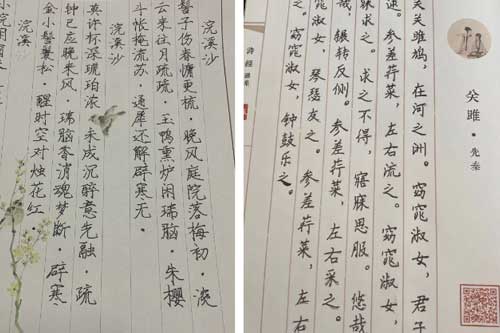 浣溪沙
髻子伤春慵更梳·晚风庭院落梅初·淡
云来往月疏疏·玉鸭熏炉闲瑞脑·朱樱
斗帐掩流苏·通犀还解辟寒无·
浣溪沙
莫许杯深琥珀浓·未成沉醉意先融·疏
钟已应晚来风·瑞脑香消魂梦断·辟寒
金小髻鬟松·醒时空对烛花红·
浣溪沙
关雎·先秦
关关雎鸠，在河之洲。窈窕淑女，君子
逑。参差荇菜，左右流之。窈窕淑女，
寐求之。求之不得，寤寐思服。悠哉
哉，辗转反侧。参差荇菜，左右采之。
窕淑女，琴瑟友之。参差荇菜，左右
之。窈窕淑女，钟鼓乐之。
诗经